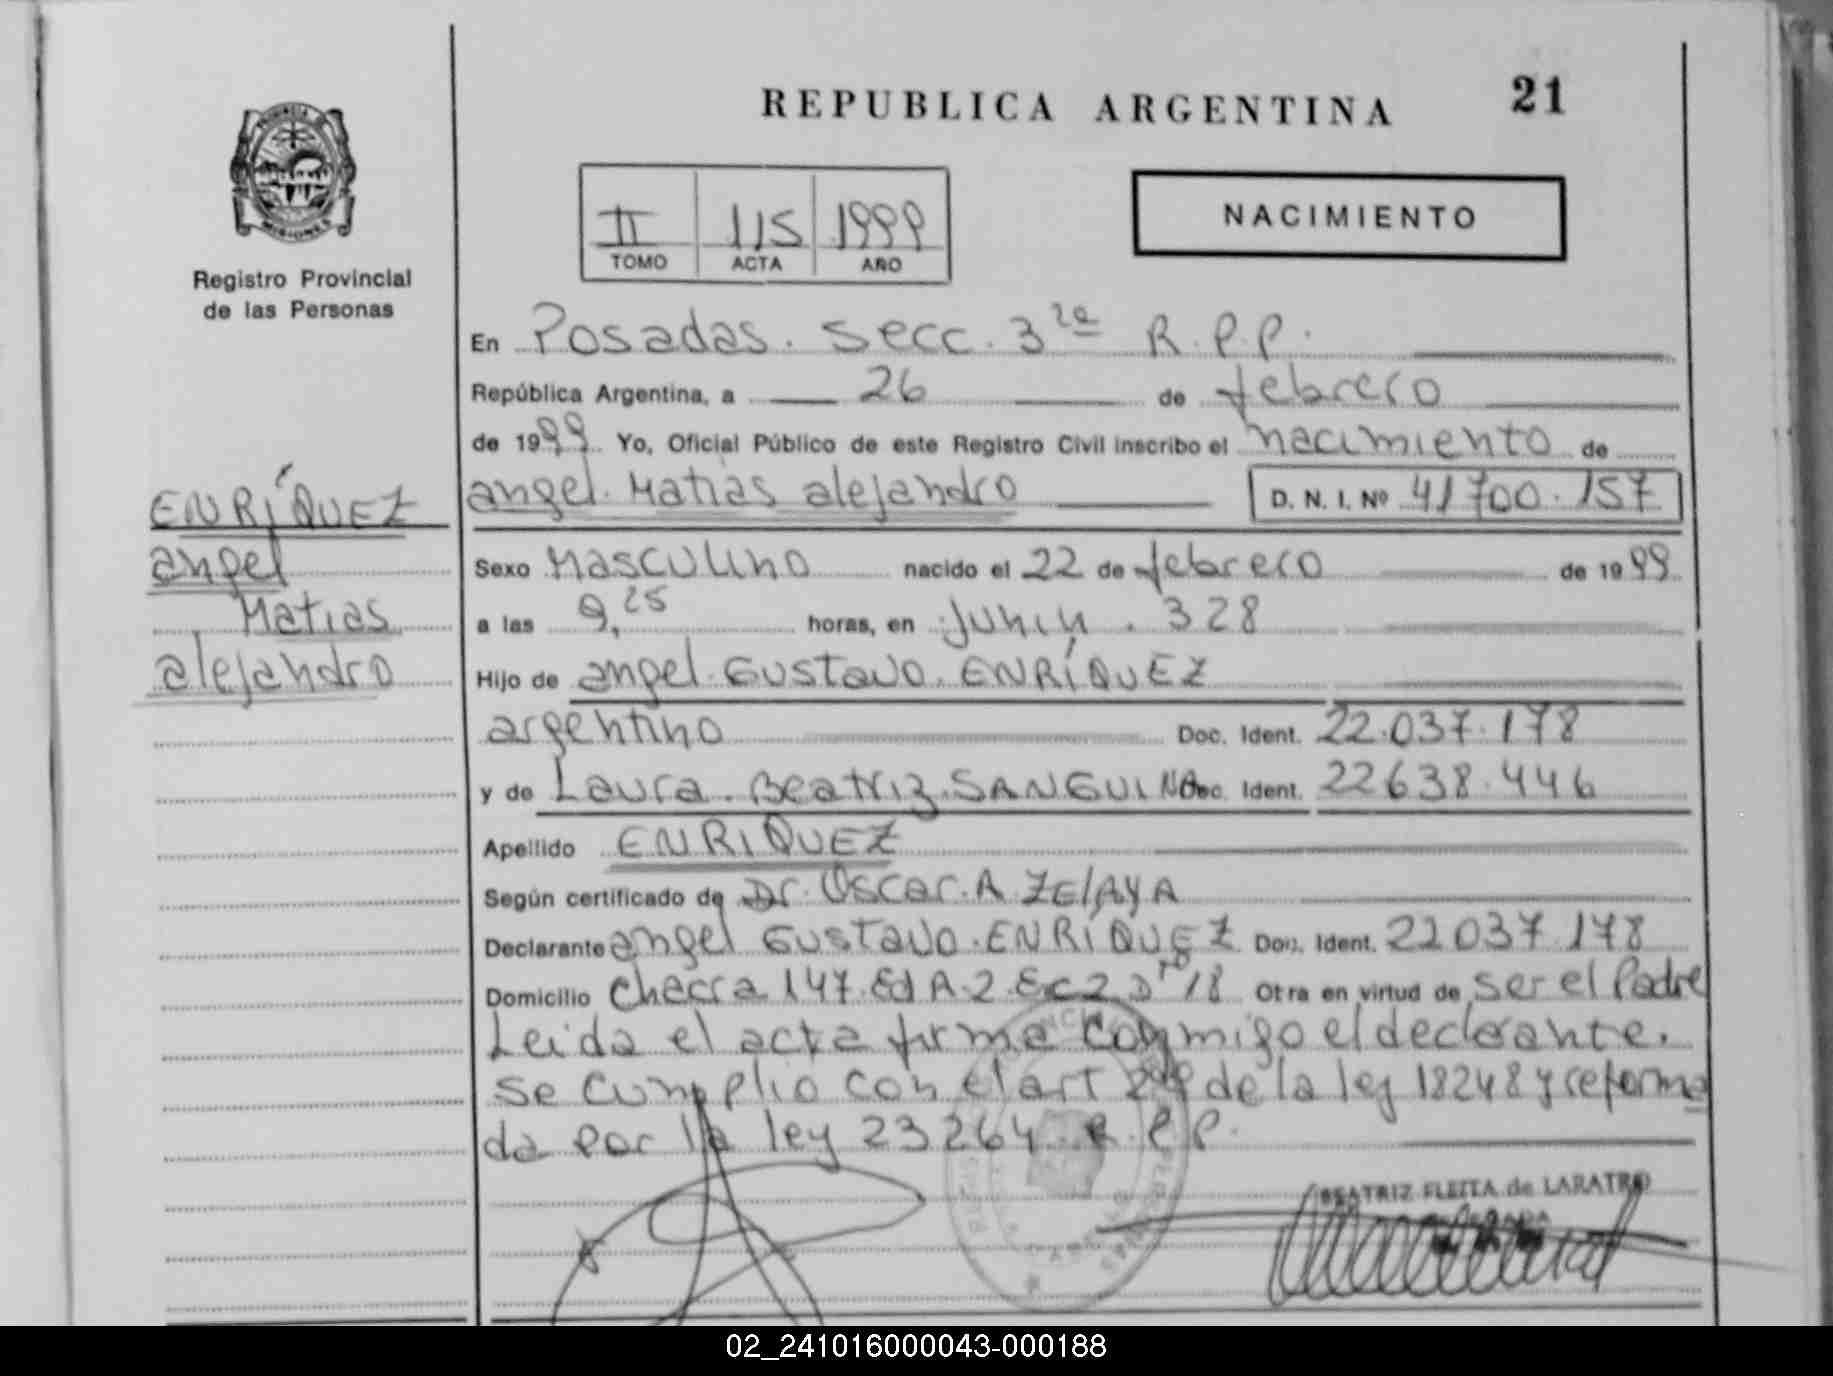 REPUBLICA ARGENTINA 21
PROVINCIA DE MISIONES
Registro Provincial
de las Personas
II 115 1999
TOMO ACTA AÑO
NACIMIENTO
En Posadas. Secc. 3ra R.P.P.
República Argentina, a 26 de febrero
de 1999 Yo, Oficial Público de este Registro Civil inscribo el nacimiento de
angel. Matias alejandro D. N. I. Nº 41700.157
ENRÍQUEZ
angel
Matias
alejandro
Sexo Masculino nacido el 22 de febrero de 1999
a las 9,25 horas, en Junin. 328
Hijo de angel. Gustavo. ENRÍQUEZ
argentino Doc. Ident. 22.037.178
y de Laura. Beatriz. SANGUINA Doc. Ident. 22638.446
Apellido ENRIQUEZ
Según certificado de Dr. Oscar. A. ZElAyA
Declarante angel Gustavo. ENRIQUEZ Doc. Ident. 22037.178
Domicilio Chacra 147. Ed A-2. Esc 2 Dto 18 Otra en virtud de ser el Padre
Leida el acta firma conmigo el declarante.
se cumplio con el art 2do de la ley 18248 y reforma
da por la ley 23264. R.P.P.
BEATRIZ FLEITA de LARATRO
02_241016000043-000188